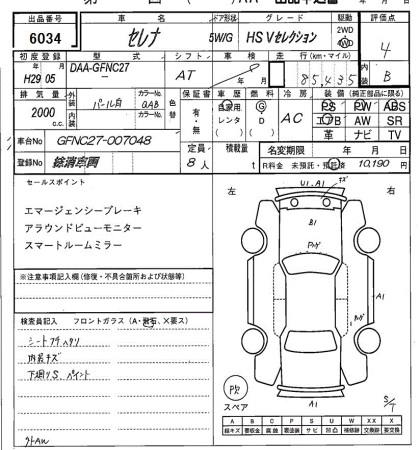 出品番号 車名 ドア形状 グレード 駆動 評価点
6034 セレナ 5W/G HS Vセレクション 2WD 4WD 4
初度登録 型式 シフト 車検 走行(km・マイル) 内装
H29 05 DAA-GFNC27 AT 年 月 85,435 B
排気量 外装 カラーNo. 色替 保証書 車歴 燃料 冷房 装備(純正部品に限る)
2000 c.c. パール白 QAB 有・無 自家用 レンタ G D AC PS PW ABS
内装 カラーNo. エアB AW SR
革 ナビ TV
車台No GFNC27-007048 定員 積載量 名変期限 年 月 日
登録No 抹消 8人 t R料金 未預託・預託済 10,190 円
セールスポイント 左 右
エマージェンシーブレーキ
アラウンドビューモニター
スマートルームミラー
キズ
U1.A1
B1
A1
※注意事項記入欄(修復・不具合箇所および状態等)
検査員記入 フロントガラス(A・飛石、X要ス)
内装キズ
スペア
A1
A B C P S U W X XX
線キズ 要板金 腐蝕 要塗装 サビ 凹凸 補修跡 要交換 交換跡
外AW